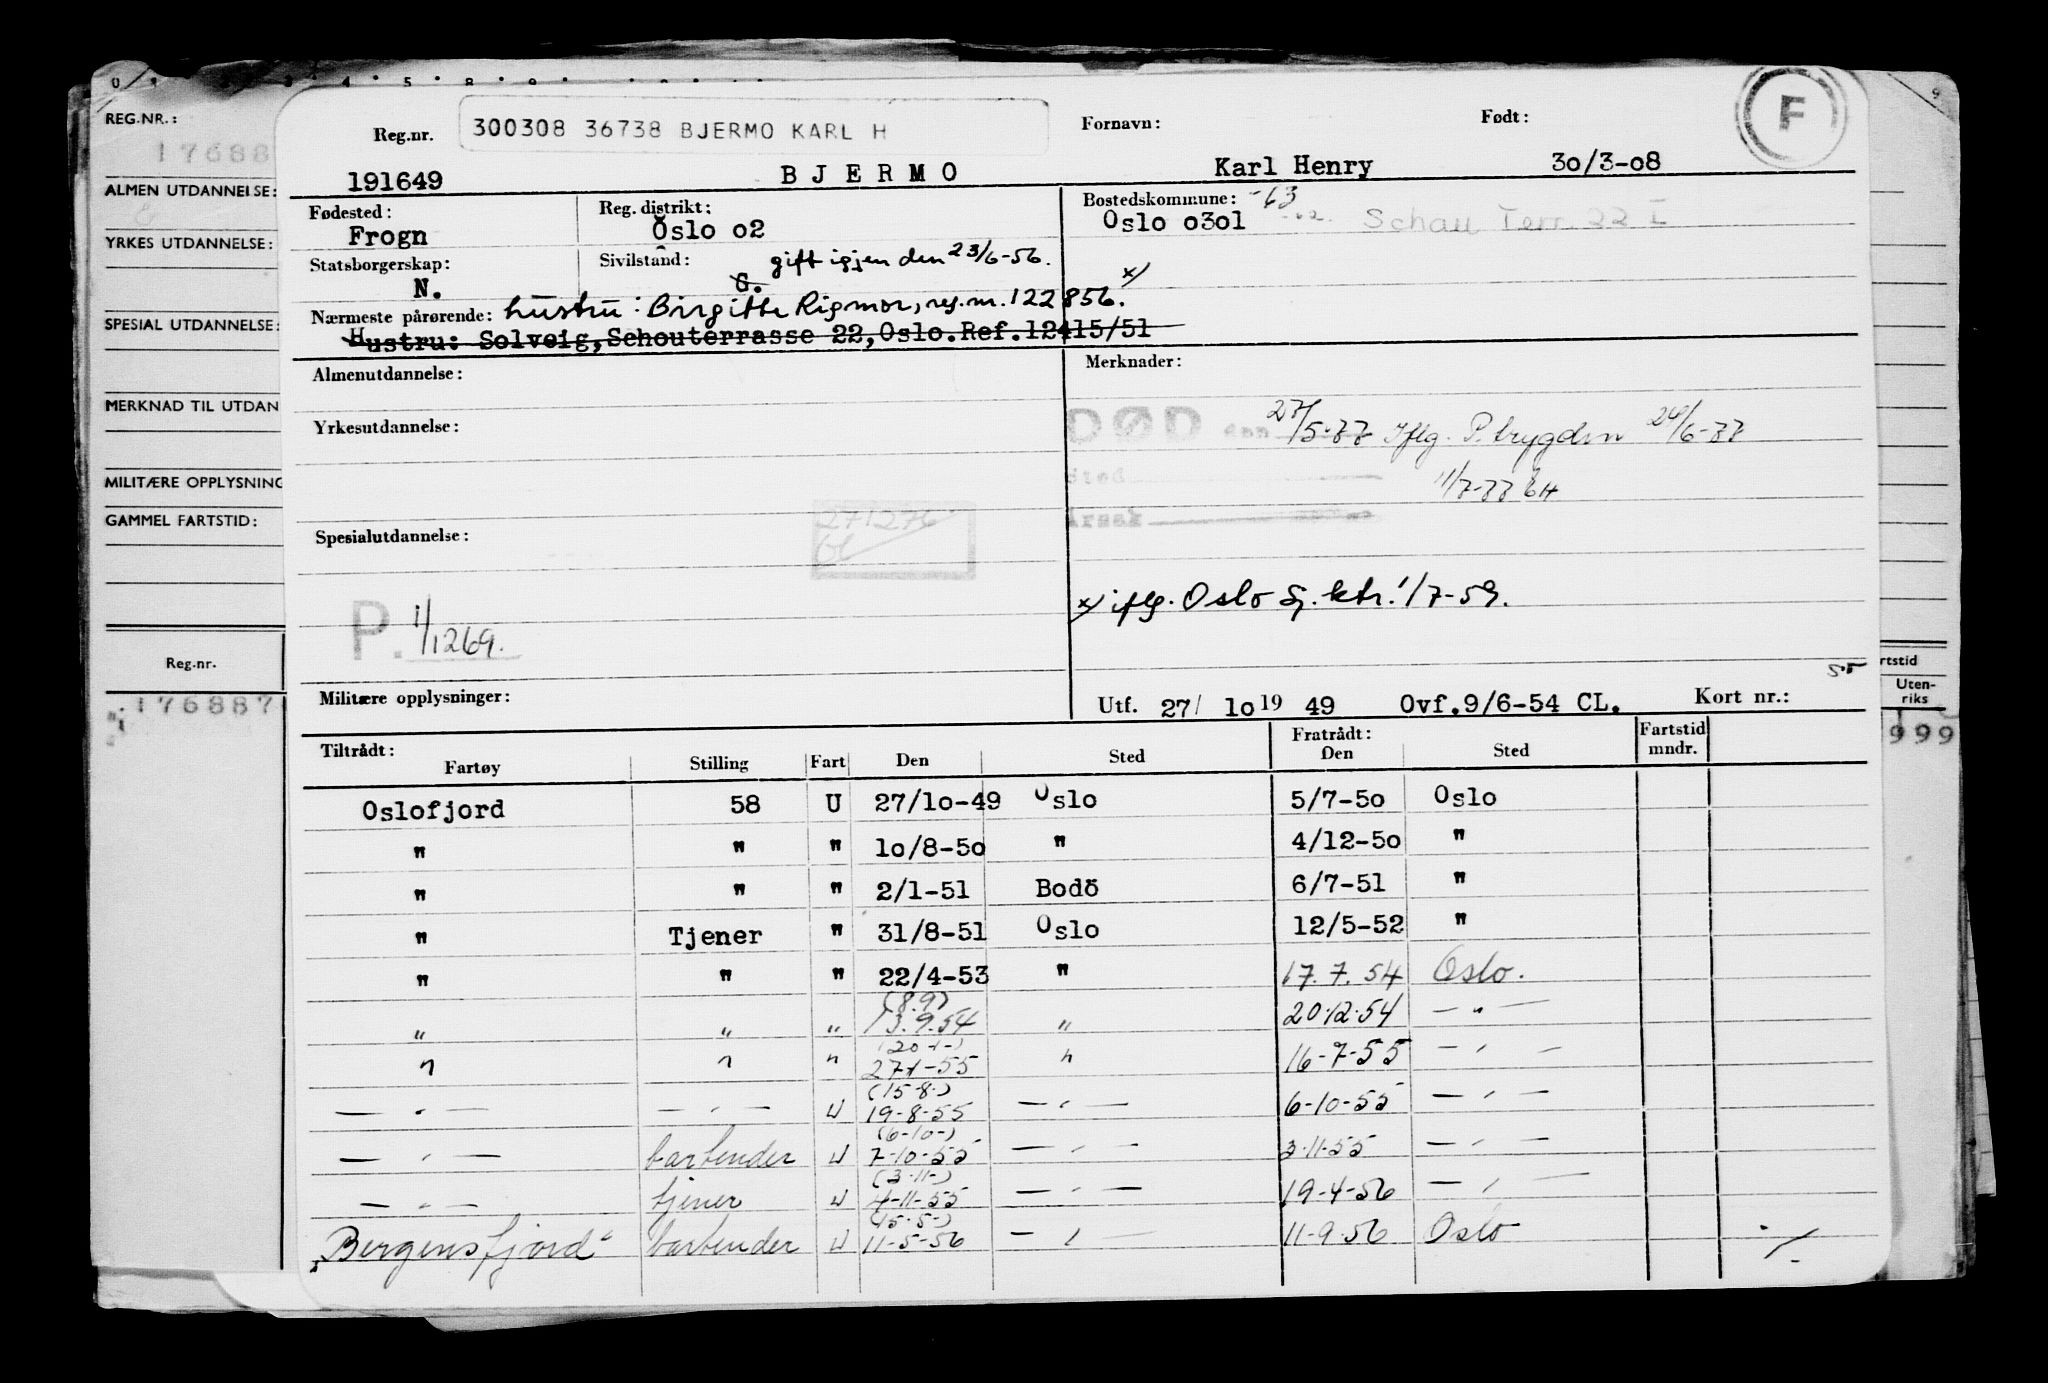 REG.NR.:
176887
ALMEN UTDANNELSE:
YRKES UTDANNELSE:
SPESIAL UTDANNELSE:
MERKNAD TIL UTDAN
MILITÆRE OPPLYSNING
GAMMEL FARTSTID:
Reg.nr.
176887
Reg.nr. 300308 36738 BJERMO KARL H Fornavn: Født: F
191649 BJERMO Karl Henry 30/3-08
Fødested: Reg. distrikt: Bostedskommune: -63
Frogn Oslo o2 Oslo o3o1 Schau Terr. 22 I
Statsborgerskap: Sivilstand: gift igjen den 23/6-56.
N. G. x)
Nærmeste pårørende: hustru: Birgitte Rigmor, reg.nr. 122856.
Hustru: Solveig, Schouterrasse 22, Oslo. Ref. 12415/51
Almenutdannelse: Merknader:
Yrkesutdannelse: DØD den 27/5-77 Iflg. P.trygden 24/6-77
Sted
11/7-77 GH
Årsak
271276
Spesialutdannelse:
x) iflg. Oslo sj.ktr. 1/7-59.
P. 1/1269.
Militære opplysninger: Utf. 27/ 1o 19 49 Ovf. 9/6-54 CL. Kort nr.:
Tiltrådt: Fratrådt: Fartstid
Fartøy Stilling Fart Den Sted Den Sted mndr.
Oslofjord 58 U 27/1o-49 Oslo 5/7-5o Oslo
" " " 1o/8-5o " 4/12-5o "
" " " 2/1-51 Bodö 6/7-51 "
" Tjener " 31/8-51 Oslo 12/5-52 "
" " " 22/4-53 " 17.7.54 Oslo.
(8.9)
" " " 13.9.54 " 20.12.54 — " —
(20-1-)
" " " 27-1-55 " 16-7-55 — " —
(15-8-)
— " — — " — U 19-8-55 — " — 6-10-55 — " —
(6-10-)
— " — bartender U 7-10-55 — " — 3-11-55 — " —
(3-11-)
— " — tjener U 4-11-55 — " — 19-4-56 — " —
(15-5-)
"Bergensfjord" bartender U 11-5-56 — " — 11-9-56 Oslo
rtstid
Uten-
riks
999